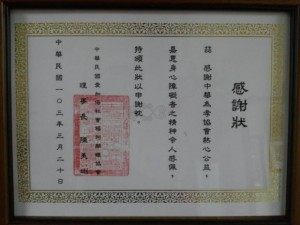 感謝狀
茲感謝中華為孝協會熱心公益，
嘉惠身心障礙者之精神令人感佩，
特頒此狀以申謝忱。
中華民國
理事長 陳
中華民國一〇三年三月二十日